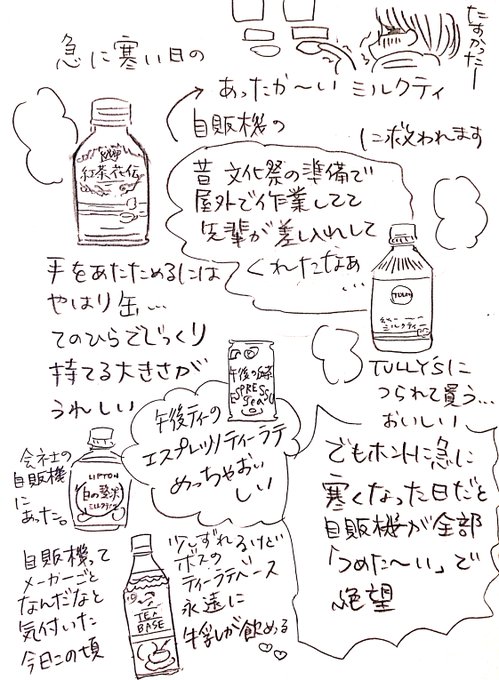 たすかったー
急に寒い日の
あったか〜い ミルクティ
自販機の
に救われます
紅茶花伝
昔 文化祭の準備で
屋外で作業してて
先輩が差し入れして
くれたなぁ
…
TULLY'S
ミルクティー
手をあたためるには
やはり缶…
てのひらでじっくり
持てる大きさが
うれしい
午後の紅茶
ESPRESSO
Tea
TULLY'Sに
つられて買う…
おいしい
午後ティーの
エスプレッソティーラテ
めっちゃおい
しい
会社の
自販機
に
あった。
LIPTON
白の贅沢
ミルクティー
でもホントに急に
寒くなった日だと
自販機が全部
「つめた〜い」で
絶望
自販機って
メーカーごと
なんだなと
気付いた
今日この頃
TEA
BASE
少しずれるけど
ボスの
ティーラテベース
永遠に
牛乳が飲める